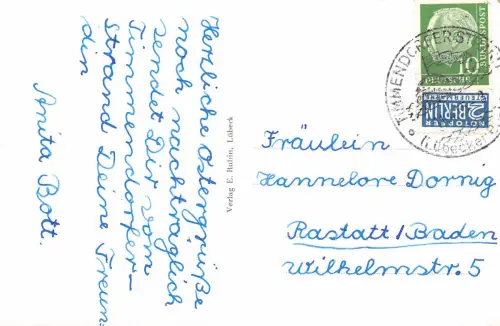 Herzliche Ostergrüße
noch nachträglich
sendet Dir vom
Timmendorfer-
Strand Deine Freun
din
Anita Bott.
Verlag E. Rubin, Lübeck
10
BUNDESPOST
DEUTSCHE
TIMMENDORFER STRAND
2 BERLIN
NOTOPFER
STEUERMARKE
Fräulein
Hannelore Dornig
Rastatt/Baden
Wilhelmstr. 5